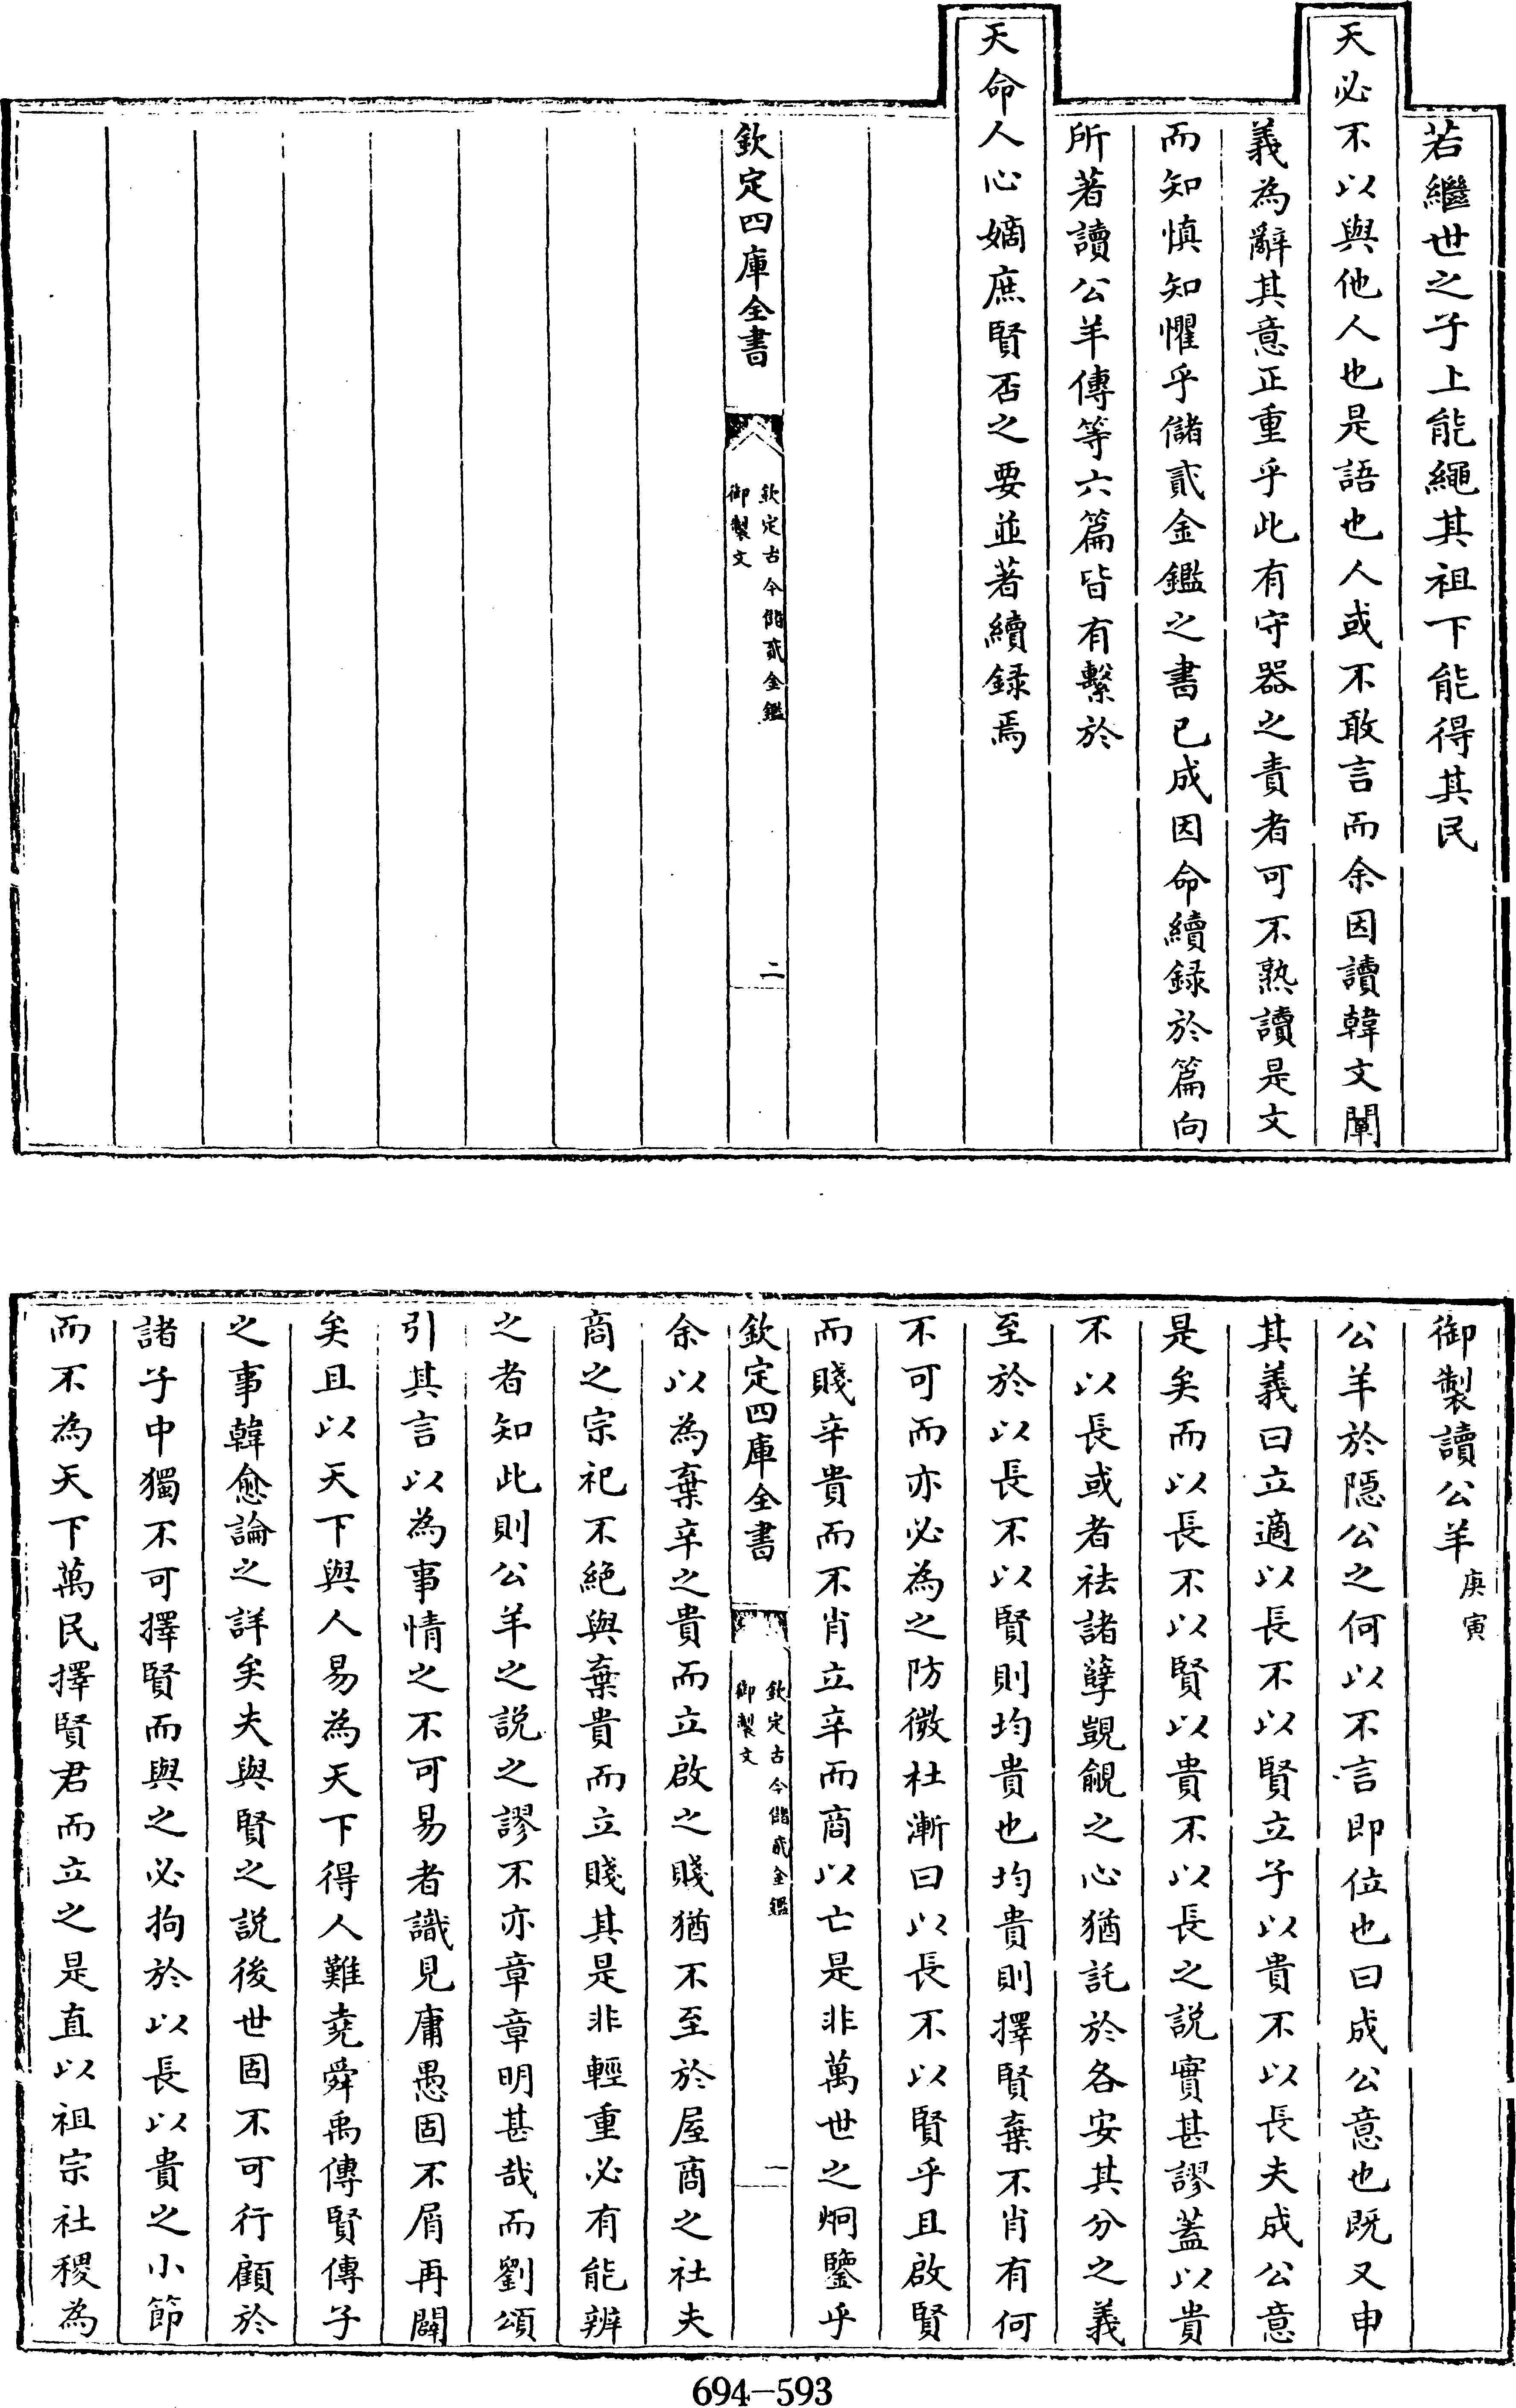 若繼世之子上能繩其祖下能得其民
天必不以與他人也是語也人或不敢言而余因讀韓文闡
義為辭其意正重乎此有守器之責者可不熟讀是文
而知慎知懼乎儲貳金鑑之書已成因命續録於篇向
所著讀公羊傳等六篇皆有繫於
天命人心嫡庶賢否之要並著續録焉
欽定四庫全書
欽定古今儲貳金鑑
御製文
二
御製讀公羊庚寅
公羊於隱公之何以不言即位也曰成公意也既又申
其義曰立適以長不以賢立子以貴不以長夫成公意
是矣而以長不以賢以貴不以長之説實甚謬蓋以貴
不以長或者祛諸孽覬覦之心猶託於各安其分之義
至於以長不以賢則均貴也均貴則擇賢棄不肖有何
不可而亦必為之防微杜漸曰以長不以賢乎且啟賢
而賤辛貴而不肖立辛而商以亡是非萬世之炯鑒乎
欽定四庫全書
欽定古今儲貳金鑑
御製文
一
余以為棄辛之貴而立啟之賤猶不至於屋商之社夫
商之宗祀不絶與棄貴而立賤其是非輕重必有能辨
之者知此則公羊之説之謬不亦章章明甚哉而劉頌
引其言以為事情之不可易者識見庸愚固不屑再闢
矣且以天下與人易為天下得人難堯舜禹傳賢傳子
之事韓愈論之詳矣夫與賢之説後世固不可行顧於
諸子中獨不可擇賢而與之必拘於以長以貴之小節
而不為天下萬民擇賢君而立之是直以祖宗社稷為
694-593